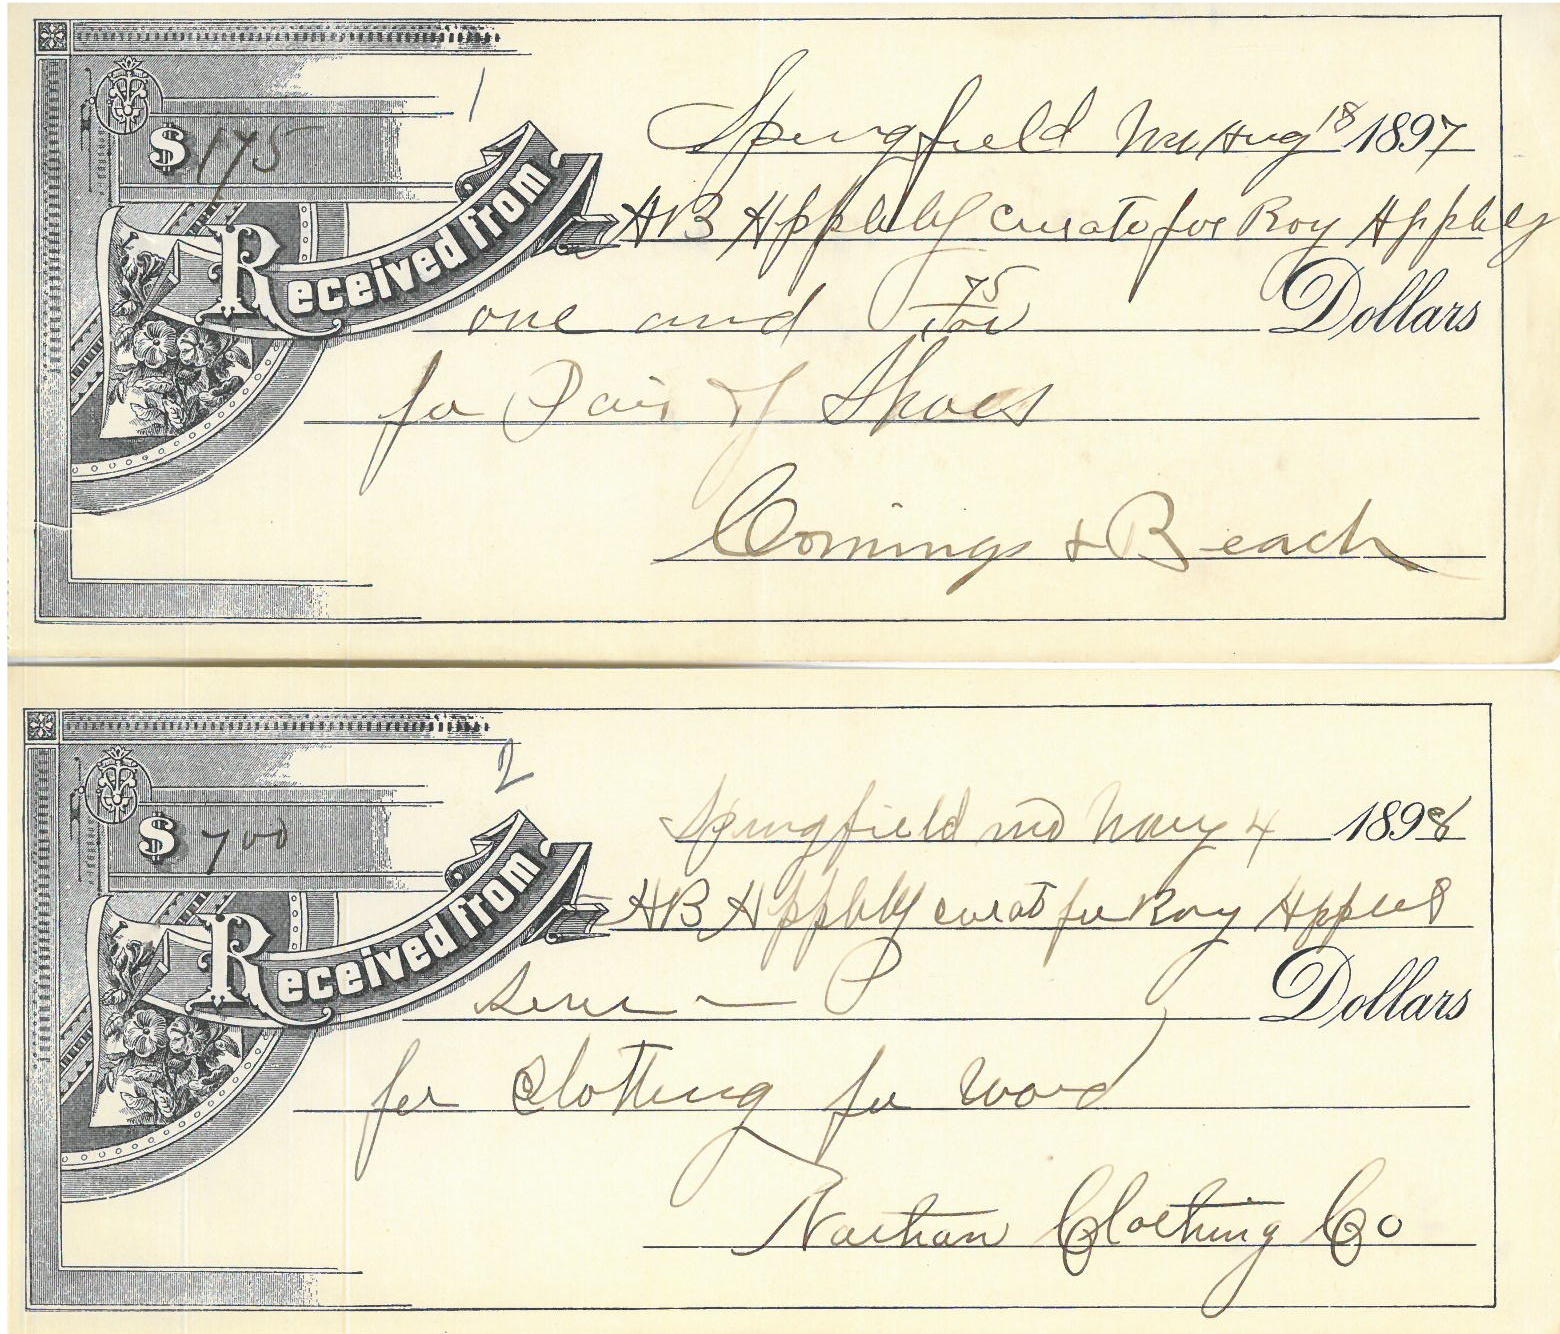 1
Springfield Mo Aug 18 1897
$ 175
Received from HB Applbly curato for Roy Appbly
one and 75/100 Dollars
for Pair of Shoes
Comings & Beach
2
Springfield Mo 4 1898
$ 700
Received from HB Applbly curat for Roy
Seven Dollars
for Clothing for Ward
Nathan Clothing Co